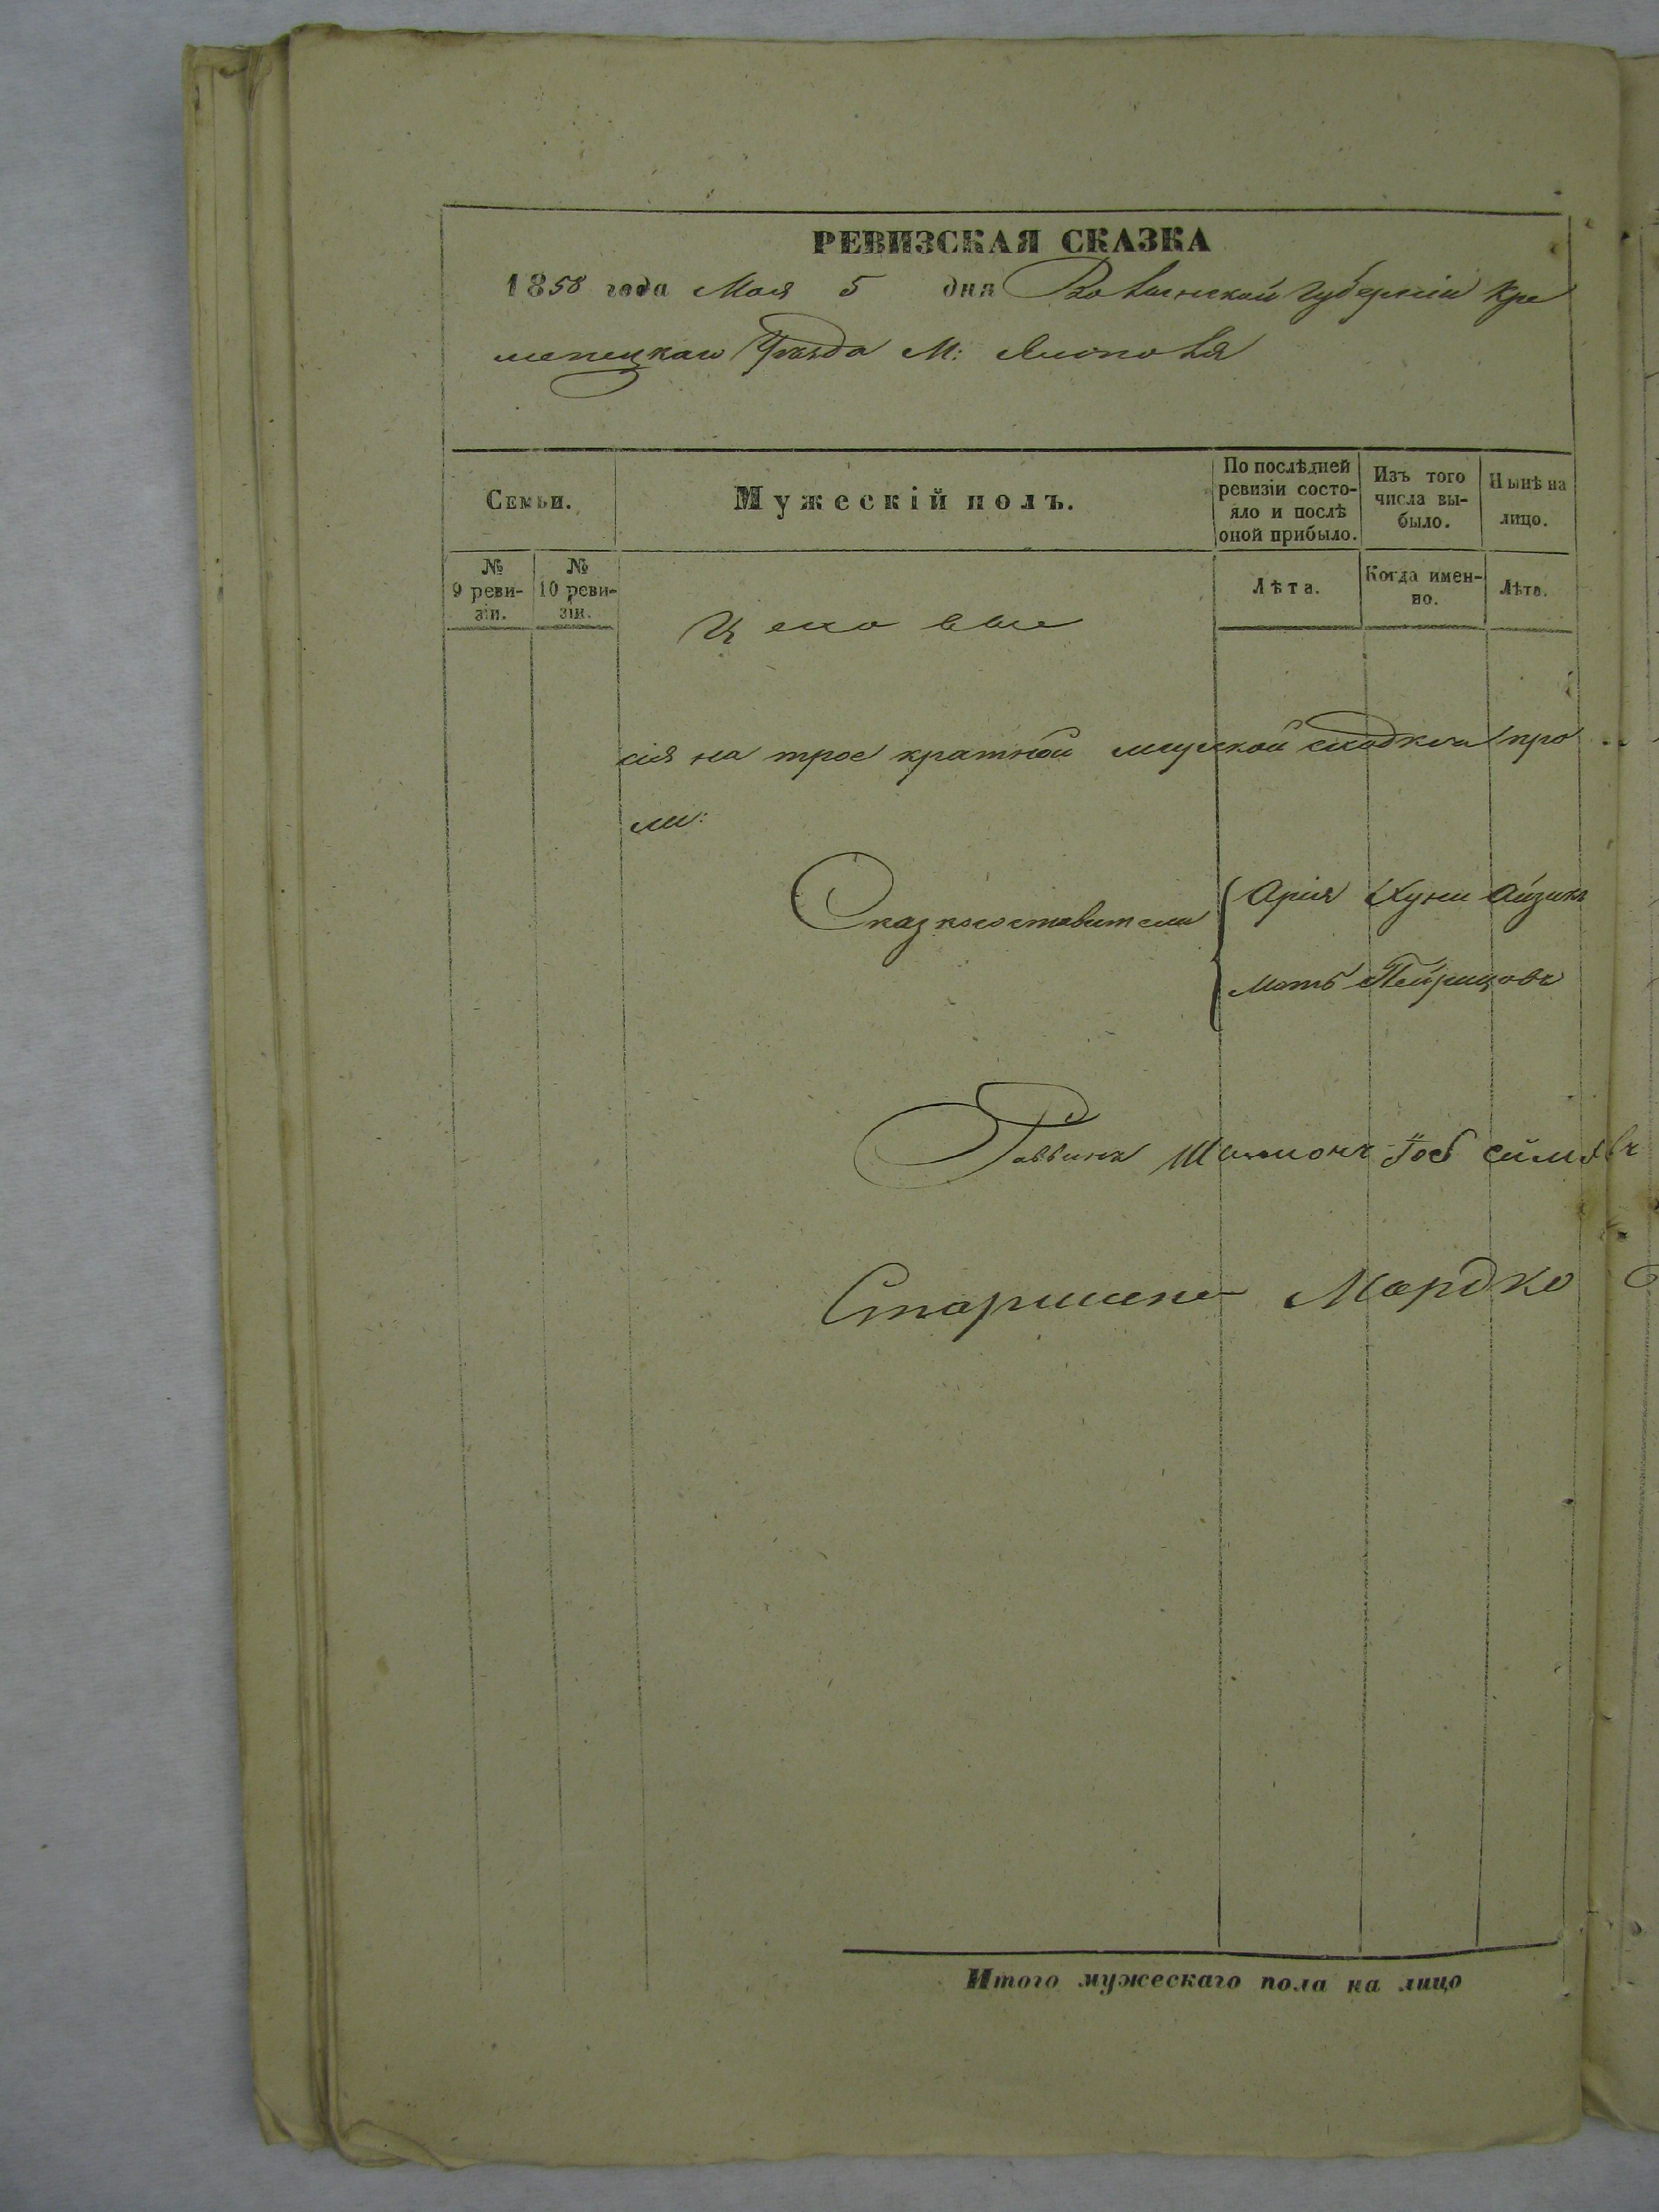 РЕВИЗСКАЯ СКАЗКА
1858 года Мая 5 дня Волынской Губерніи Кре
менецкаго Уѣзда М: Ямполя
Семьи.
Мужескій полъ.
По послѣдней ревизіи состо-
яло и послѣ оной прибыло.
Изъ того числа вы-
было.
Нынѣ на лицо.
№ 9 реви-
зіи.
№ 10 реви-
зіи.
Лѣта.
Когда имен-
но.
Лѣта.
сія на трое кратной мирской про
ли:
Сказкосоставители
Арія Хуни Айзикъ
Мотъ
Раввинъ Шимонъ
Старшина Мордко
Итого мужескаго пола на лицо